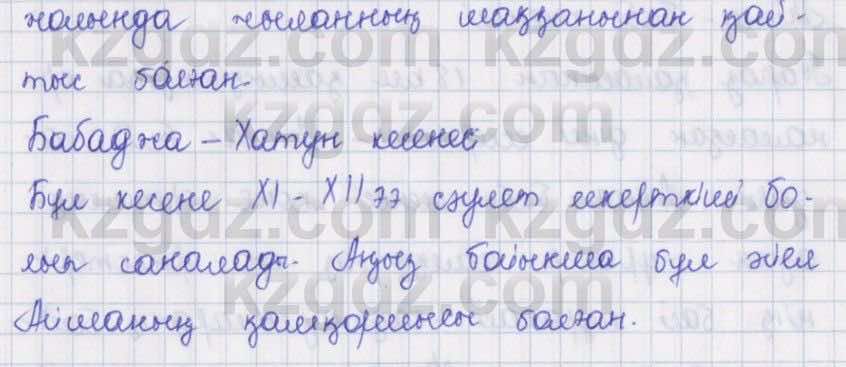 жолында жыланның шаққанынан қай-
тыс болған.
Бабаджа – Хатун кесенесі
Бұл кесене XI - XII ғғ сәулет ескерткіші бо-
лып саналады. Аңыз бойынша бұл әйел
Айшаның қамқоршысы болған.
kzgdz.com